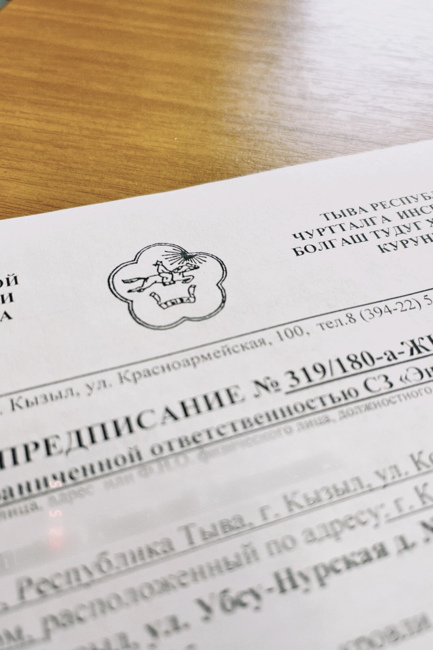 ОЙ
И
А
ТЫВА РЕСПУБ
ЧУРТТАЛГА ИНС
БОЛГАШ ТУДУГ Х
КУРУН
. Кызыл, ул. Красноармейская, 100, тел.8 (394-22) 5
ПРЕДПИСАНИЕ № 319/180-а-Ж
раниченной ответственностью СЗ «Эн
лица, адрес или Ф.И.О. физического лица, должностного
, Республика Тыва, г. Кызыл, ул. К
ом, расположенный по адресу: г. К
ызыл, ул. Убсу-Нурская д. №
кровли